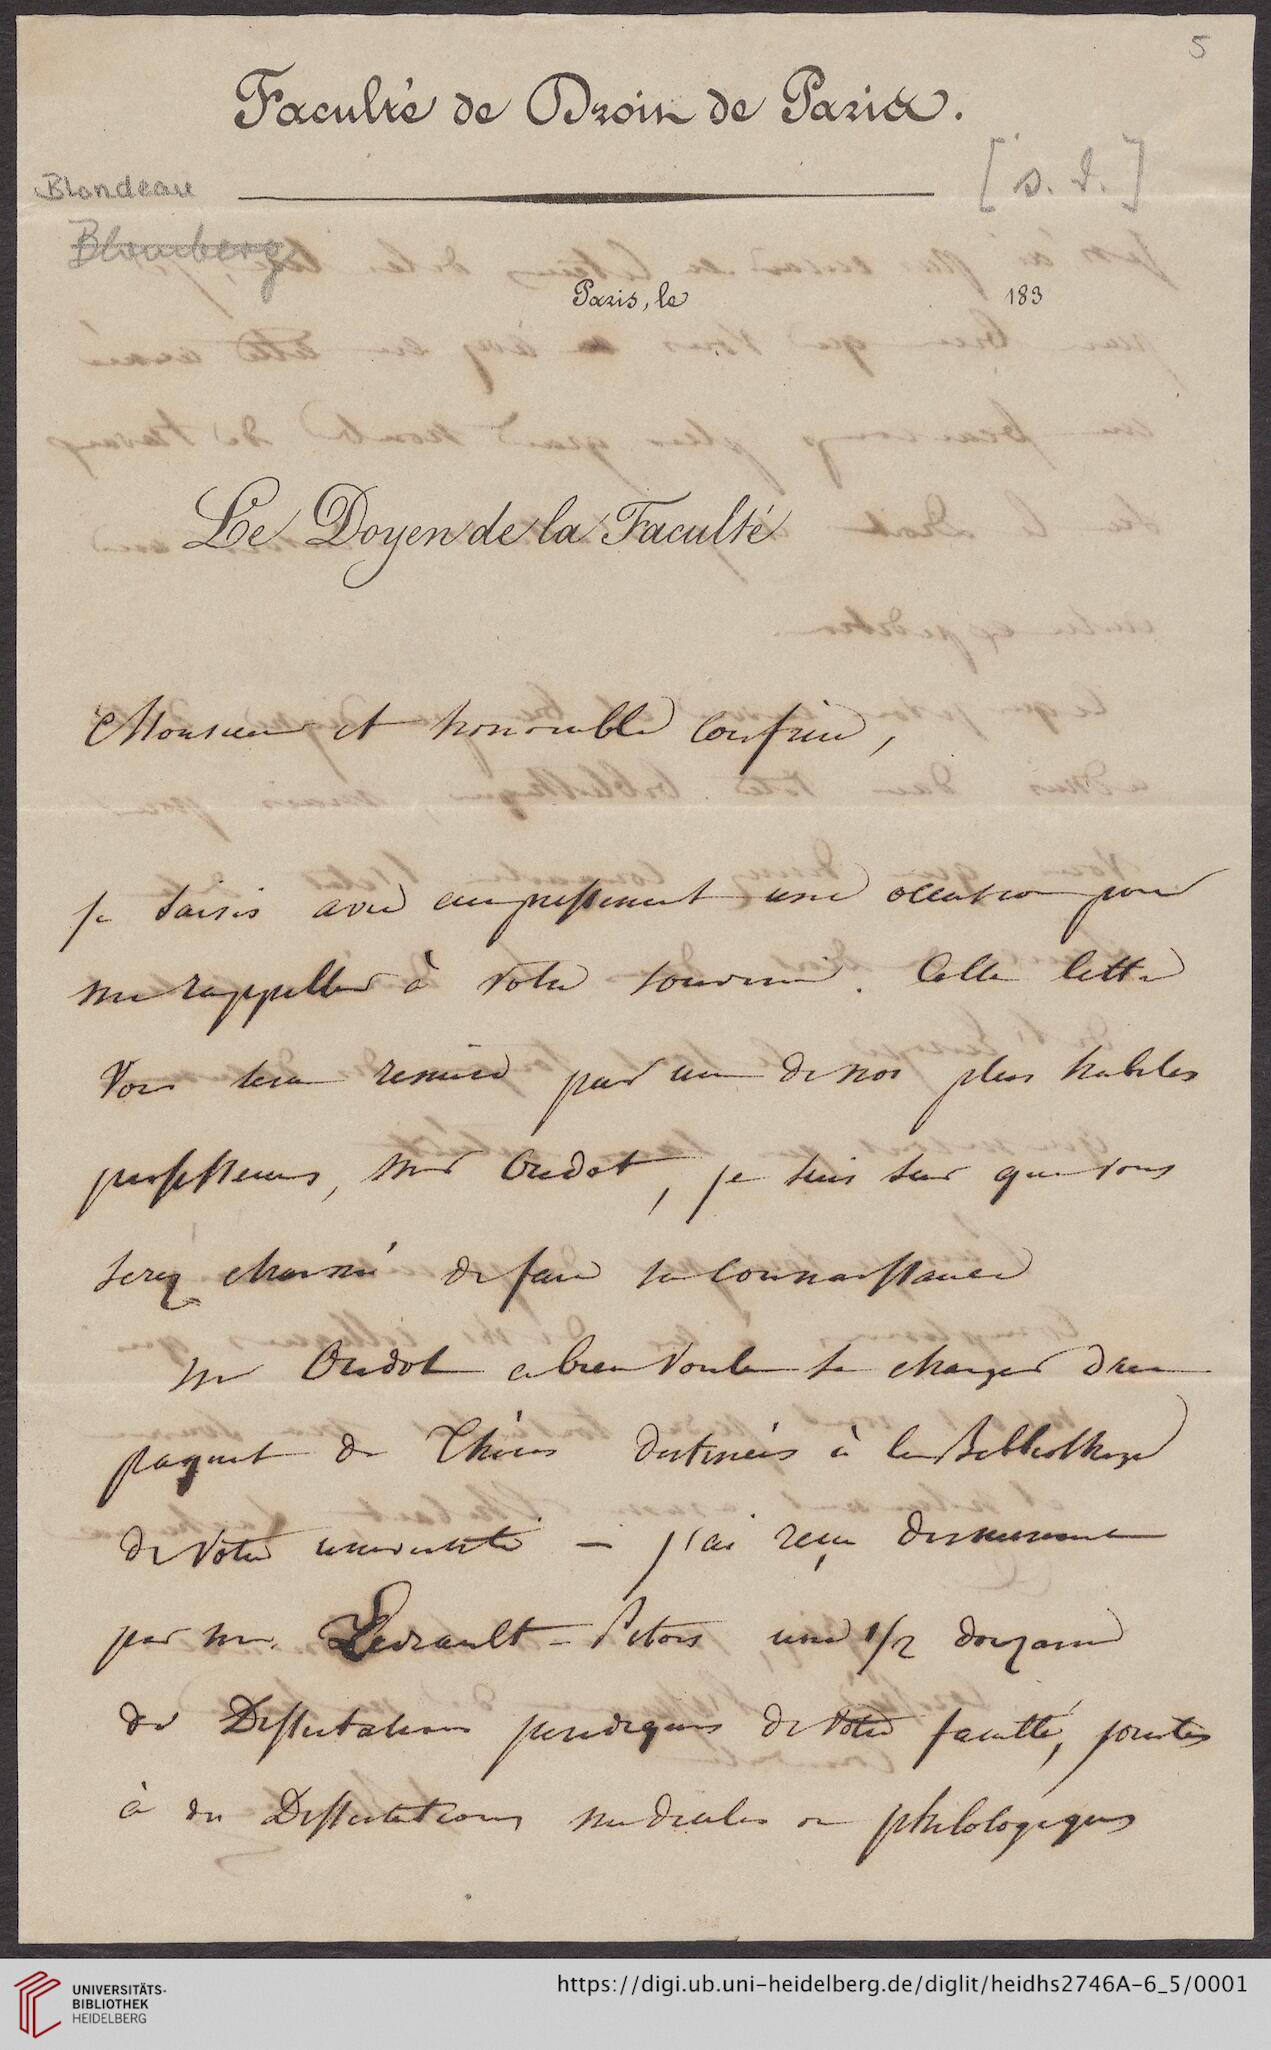 5
Faculté de Droit de Paris.
[s. d.]
Blondeau
Blomberg
Paris, le 183
Le Doyen de la Faculté
Monsieur et honorable Confrère,
je saisis avec empressement une occasion pour
me rappeller à votre souvenir. Cette lettre
vous sera remise par un de nos plus habiles
professeurs, Mr Oudot, je suis sur que vous
serez charmé de faire sa connaissance
Mr Oudot a bien voulu se charger d'un
paquet de Thèses destinées à la Bibliothèque
de votre université – j'ai reçu dernierement
par Mr. Levrault-Pitois une 1/2 douzaine
de Dissertations juridiques de votre faculté, jointes
à des Dissertations medicales ou philologiques
UNIVERSITÄTS-
BIBLIOTHEK
HEIDELBERG
https://digi.ub.uni-heidelberg.de/diglit/heidhs2746A-6_5/0001